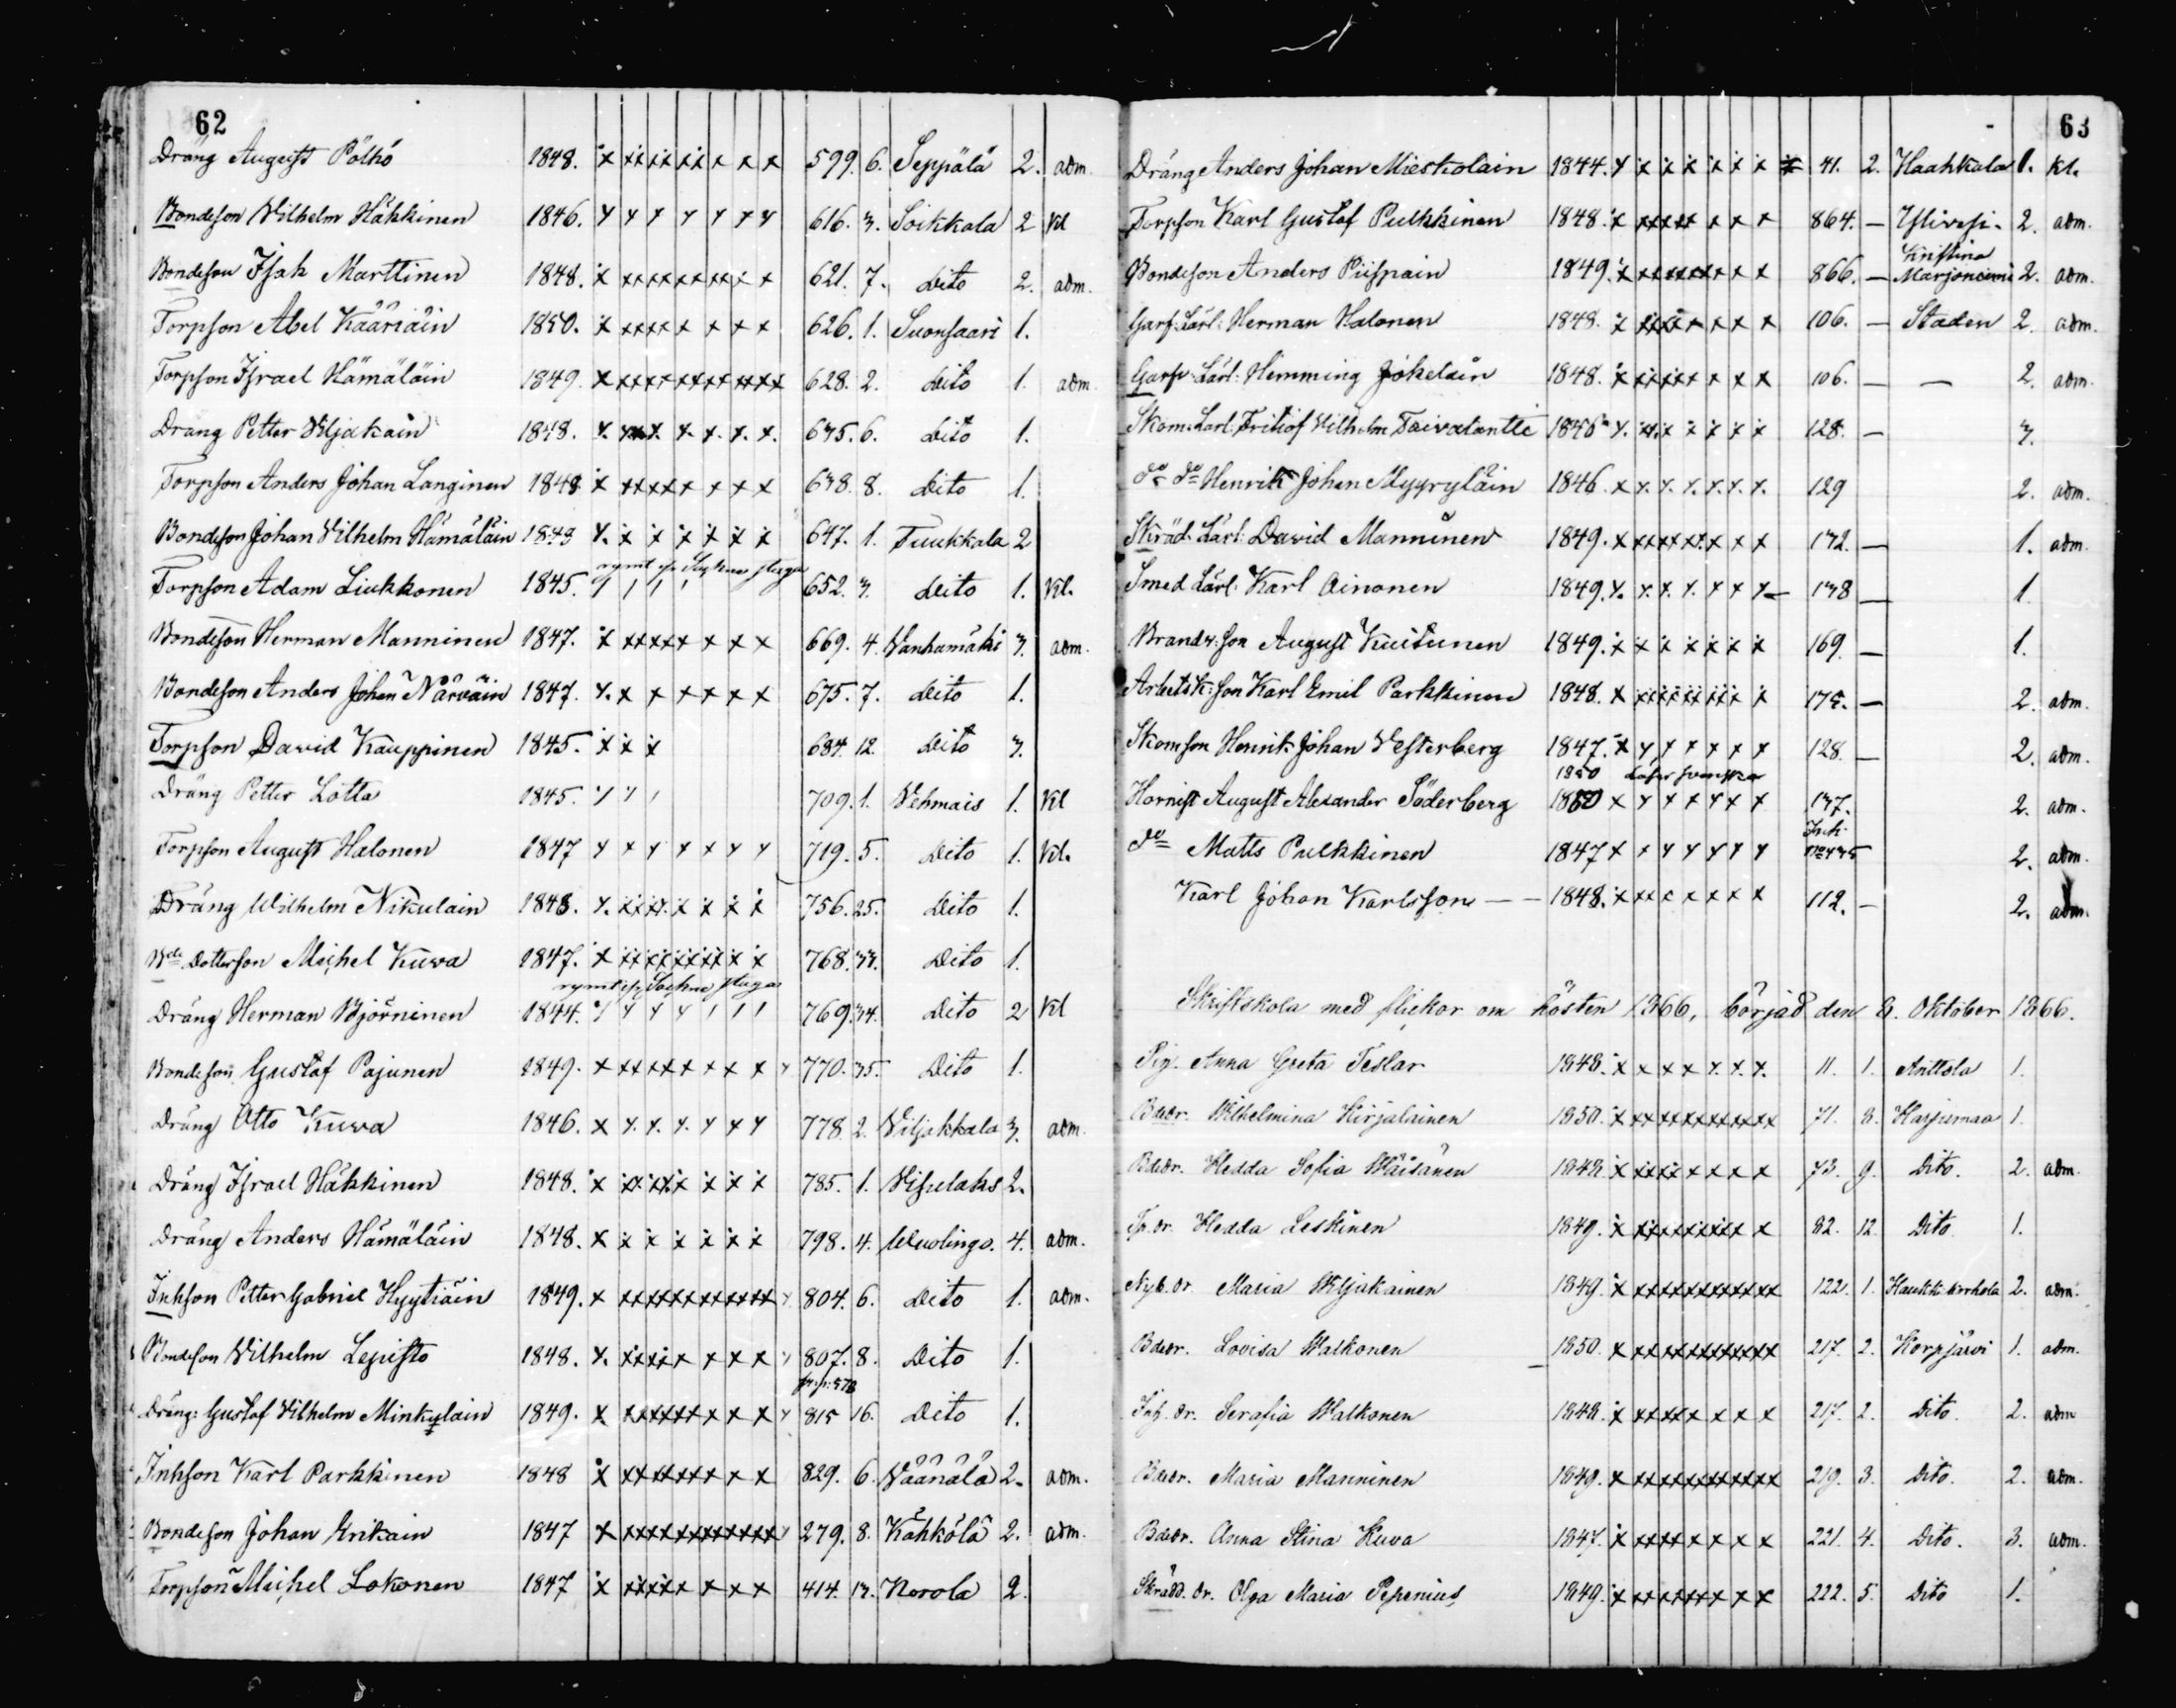 62
Dräng August Pölhö 1848. x x x x x x x x 599. 6. Seppälä 2. adm.
Bondeson Vilhelm Häkkinen 1846. y y y y y y y 616. 3. Soikkala 2 Kl
Bondeson Isak Marttinen 1848. x x x x x x x x x 621. 7. dito 2. adm.
Torpson Abel Kääriäin 1850. x x x x x x x x 626. 1. Suonsaari 1.
Torpson Israel Hämäläin 1849. x x x x x x x x x x x x 628. 2. dito 1. adm.
Dräng Petter Viljakain 1848. x. x x x. x. x. x. x. 635. 6. dito 1.
Torpson Anders Johan Langinen 1848 x x x x x x x x 638. 8. dito 1.
Bondeson Johan Vilhelm Hämäläin 1843 x. x x x x x x 647. 1. Tuukkala 2
Torpson Adam Liukkonen 1845. 652. 3. dito 1. Kl.
Bondeson Herman Manninen 1847. x x x x x x x x 669. 4. Vanhamäki 3. adm.
Bondeson Anders Johan Närväin 1847. x. x x x x x x 675. 7. dito 1.
Torpson David Kauppinen 1845. x x x 684. 12. dito 3.
Dräng Petter Lötta 1845. 709. 1. Vehmais 1. Kl
Torpson August Halonen 1847 y y y y y y y 719. 5. dito 1. Kl.
Dräng Wilhelm Nikulain 1848. x. x x x x x x x 756. 25. dito 1.
Dotterson Michel Kuwa 1847. x x x x x x x x x x 768. 33. dito 1.
Dräng Herman Björninen 1844. 769. 34. dito 2 Kl
Bondeson Gustaf Pajunen 1849. x x x x x x x x x 770. 35. dito 1.
Dräng Otto Kuwa 1846. x y. y. y. y y y 778. 2. Viljakkala 3. adm.
Dräng Israel Häkkinen 1848. x x x x x x x x 785. 1. Visulaks 2.
Dräng Anders Hämäläin 1848. x x x x x x x 798. 4. Wuolingo. 4. adm.
Inhson Petter Gabriel Hyytiäin 1849. x x x x x x x x x x x x x 804. 6. dito 1. adm.
Bondeson Vilhelm Lepisto 1848. x. x x x x x x x 807. 8. dito 1.
Dräng: Gustaf Vilhelm Minkylain 1849. x x x x x x x x x x 815 16. dito 1.
Inhson Karl Parkkinen 1848 x x x x x x x x x 829. 6. Väänälä 2. adm.
Bondeson Johan Erikain 1847 x x x x x x x x x x x x 279. 8. Kähkölä 2. adm.
Torpson Michel Lokonen 1847 x x x x x x x x 414. 13. Norola 2.
63
Dräng Anders Johan Mieskolain 1844. y x x x x x x x 41. 2. Haahkala 1. Kl.
Torpson Karl Gustaf Pulkkinen 1848. x x x x x x x x 864. — Ylivesi. 2. adm.
Kristina
Bondeson Anders Piispain 1849. x x x x x x x x x 866. — Marjoniemi 2. adm.
Garf. Lärl: Herman Halonen 1848. x x x x x x x x 106. — Staden 2. adm.
Garfv. Lärl: Hemming Jokelain 1848. x x x x x x x x x 106. — — 2. adm.
Skom. Lärl. Fritiof Vilhelm Taivalantie 1846 x. x x. x x x x x 128. — 3.
do do Henrik Johan Myyryläin 1846. x x. x. x. x. x. x. 129 2. adm.
Skräd. Lärl: David Manninen 1849. x x x x x x x. x x x 132. — 1. adm.
Smed Lärl: Karl Ainonen 1849. x. x. x. x. x x x. — 138 — 1.
Brandv: son August Kuitunen 1849. x x x x x x x 169. — 1.
Arbetsk: son Karl Emil Parkkinen 1848. x x x x x x x x x x 175. — 2. adm.
Skomson Henrik Johan Vesterberg 1847. x y y x x x x 128. — 2. adm.
1850
Hornist August Alexander Söderberg 1850 x y y x y x x 137. 2. adm.
do Matts Pulkkinen 1847 x x y y y y y 2. adm.
Karl Johan Karlsson — — 1848. x x x x x x x x 112. — 2. adm.
Skriftskola med flickor om hösten 1866, börjad den 8. Oktober 1866.
Pig. Anna Greta Teslar 1848. x x x x x. x. x. 11. 1. Anttola 1.
Bdedr. Wilhelmina Kirjalainen 1850. x x x x x x x x x x x x 71. 8. Harjumaa 1.
Bdedr. Hedda Sofia Wäisänen 1848. x x x x x x x x x 73. 9. Dito. 2. adm.
Tp. dr. Hedda Leskinen 1849. x x x x x x x x x x 82. 12. Dito 1.
Nyb. dr. Maria Wiljakainen 1849. x x x x x x x x x x x x 122. 1. 2. adm.
Bdedr. Lovisa Walkonen 1850. x x x x x x x x x x x x 217. 2. Korpjärvi 1. adm.
Inh. dr. Serafia Walkonen 1848. x x x x x x x x x 217. 2. Dito. 2. adm
Bdedr. Maria Manninen 1849. x x x x x x x x x x x x 219. 3. Dito. 2. adm.
Bdedr. Anna Stina Kuwa 1847. x x x x x x x x x 221. 4. Dito. 3. adm.
Skrädd. dr. Olga Maria Pepenius 1849. x x x x x x x x x x 222. 5. Dito 1.